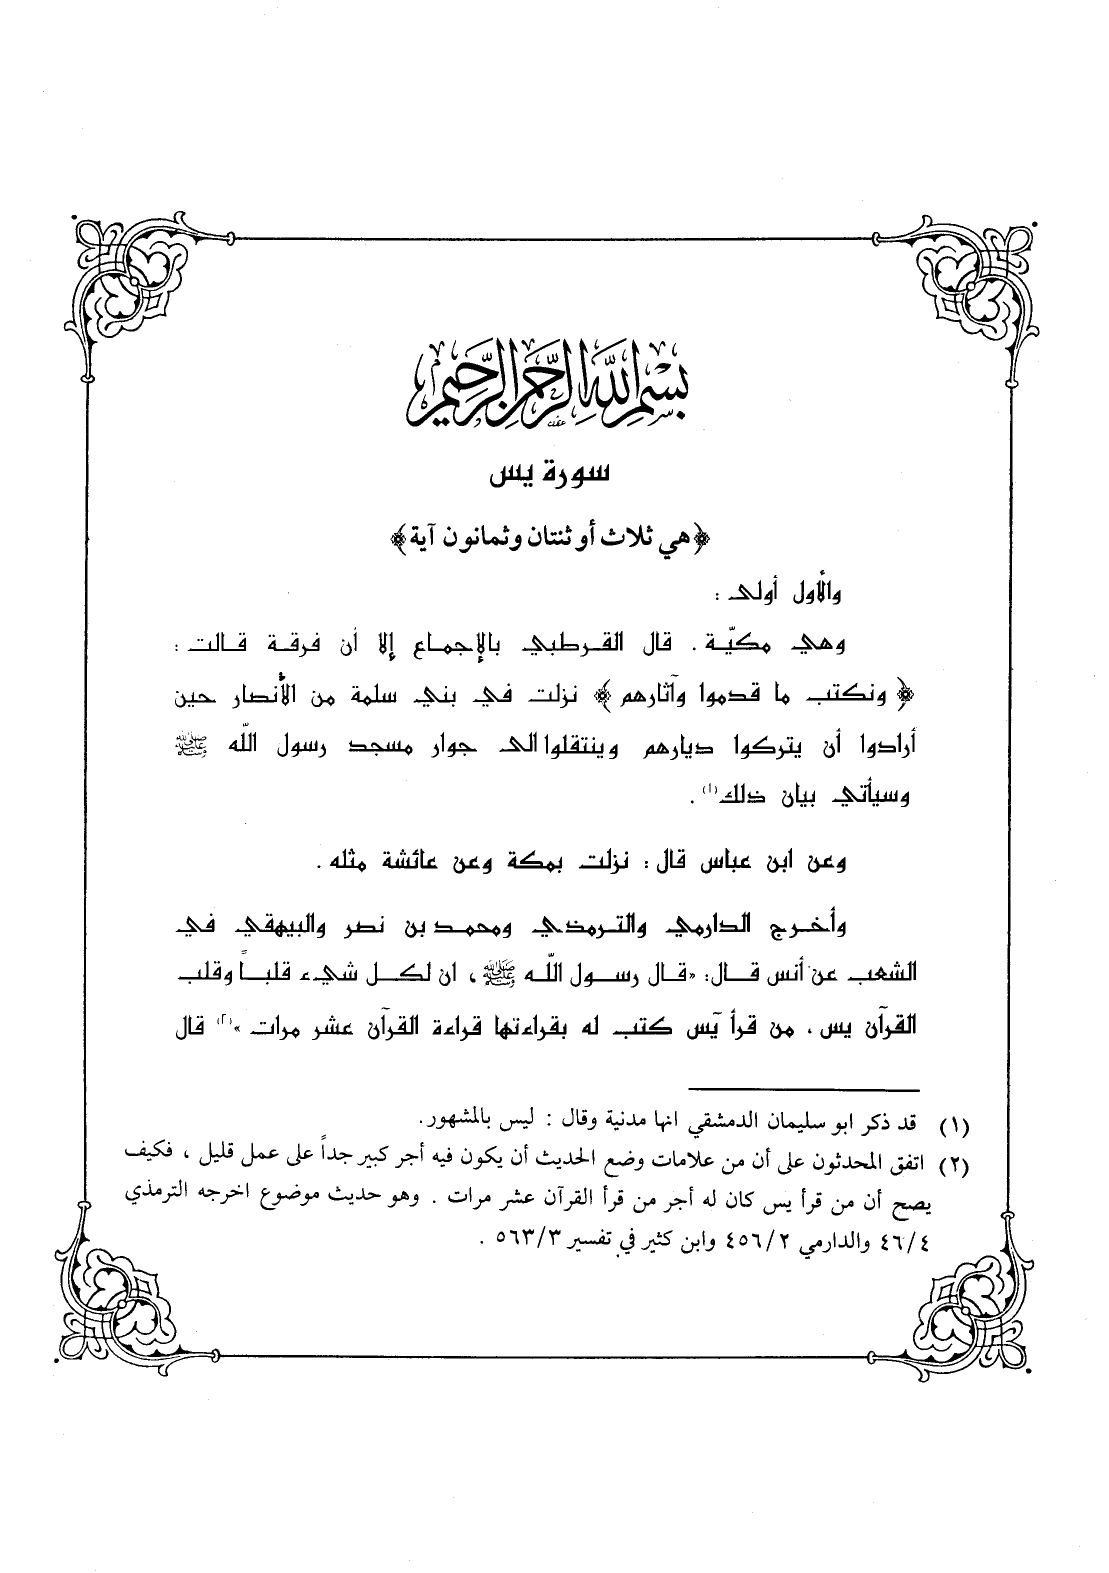 بسم الله الرحمن الرحيم
سورة يس
﴿هي ثلاث أو ثنتان وثمانون آية﴾
والأول أولى :
وهي مكيّة . قال القرطبي بالإجماع إلا أن فرقة قالت :
﴿ ونكتب ما قدموا وآثارهم ﴾ نزلت في بني سلمة من الأنصار حين
أرادوا أن يتركوا ديارهم وينتقلوا الى جوار مسجد رسول اللّه ﷺ
وسيأتي بيان ذلك(١) .
وعن ابن عباس قال : نزلت بمكة وعن عائشة مثله .
وأخرج الدارمي والترمذي ومحمد بن نصر والبيهقي في
الشعب عن أنس قال: «قال رسول اللّه ﷺ ، ان لكل شيء قلباً وقلب
القرآن يس ، من قرأ يٓس كتب له بقراءتها قراءة القرآن عشر مرات »(٢) قال
(١) قد ذكر ابو سليمان الدمشقي انها مدنية وقال : ليس بالمشهور.
(٢) اتفق المحدثون على أن من علامات وضع الحديث أن يكون فيه أجر كبير جداً على عمل قليل ، فكيف
يصح أن من قرأ يس كان له أجر من قرأ القرآن عشر مرات . وهو حديث موضوع اخرجه الترمذي
٤٦/٤ والدارمي ٤٥٦/٢ وابن كثير في تفسير ٥٦٣/٣ .